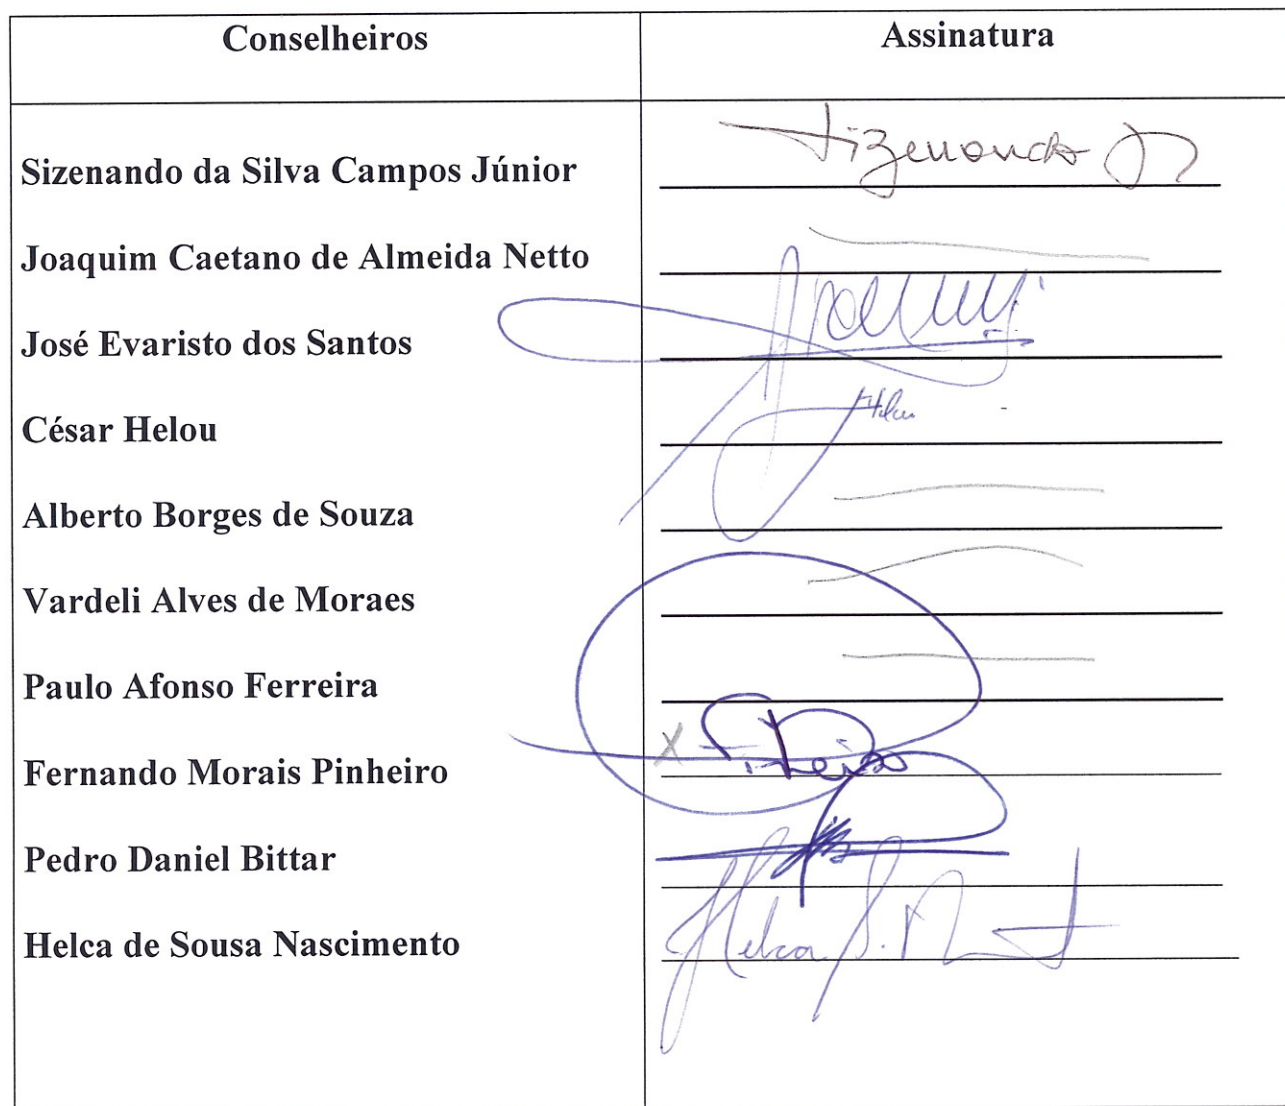 Conselheiros Assinatura
Sizenando da Silva Campos Júnior Sizenando Jr
Joaquim Caetano de Almeida Netto
José Evaristo dos Santos
César Helou Helou
Alberto Borges de Souza
Vardeli Alves de Moraes
Paulo Afonso Ferreira
Fernando Morais Pinheiro X
Pedro Daniel Bittar
Helca de Sousa Nascimento Helca S. N